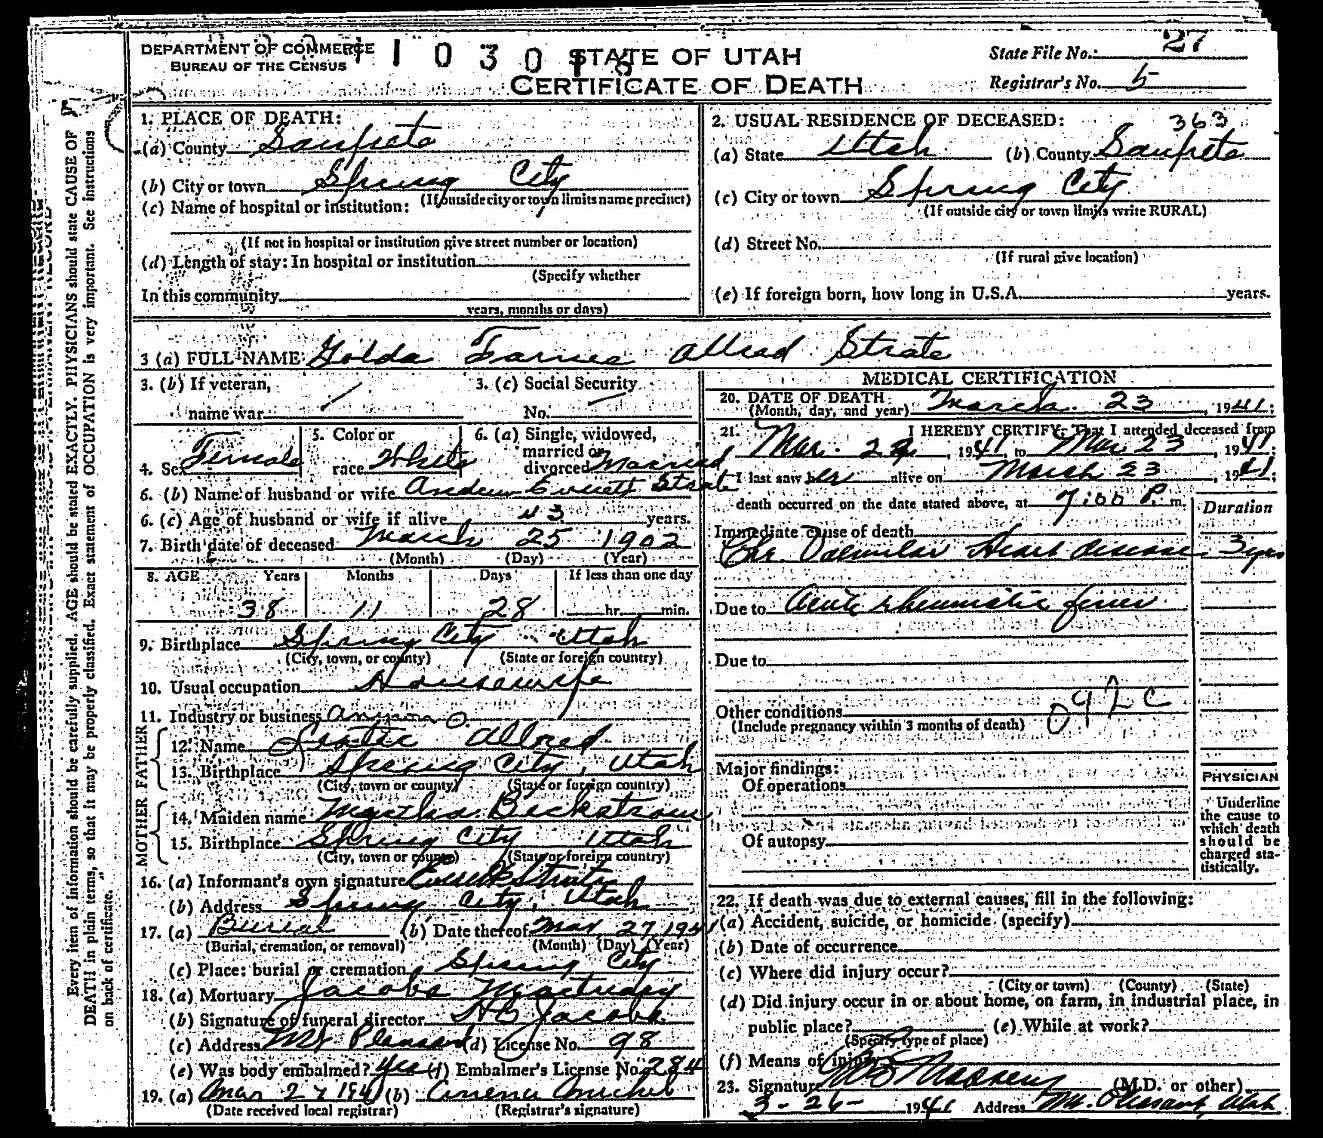 DEPARTMENT OF COMMERCE
BUREAU OF THE CENSUS
STATE OF UTAH
CERTIFICATE OF DEATH
State File No. 27
Registrar's No. 5
1. PLACE OF DEATH:
(a) County Sanpete
(b) City or town Spring City
(If outside city or town limits name precinct)
(c) Name of hospital or institution:
(If not in hospital or institution give street number or location)
(d) Length of stay: In hospital or institution
(Specify whether
In this community
years, months or days)
2. USUAL RESIDENCE OF DECEASED: 363
(a) State Utah (b) County Sanpete
(c) City or town Spring City
(If outside city or town limits write RURAL)
(d) Street No.
(If rural give location)
(e) If foreign born, how long in U.S.A. years.
3 (a) FULL NAME Golda Allred Strate
3. (b) If veteran,
name war
3. (c) Social Security
No.
4. Sex Female
5. Color or
race White
6. (a) Single, widowed,
married or
divorced Married
6. (b) Name of husband or wife Andrew Everett Strate
6. (c) Age of husband or wife if alive 43 years.
7. Birth date of deceased March 25 1902
(Month) (Day) (Year)
8. AGE Years Months Days If less than one day
38 11 28 hr. min.
9. Birthplace Spring City Utah
(City, town, or county) (State or foreign country)
10. Usual occupation Housewife
11. Industry or business
FATHER
12. Name Allred
13. Birthplace Spring City, Utah
(City, town or county) (State or foreign country)
MOTHER
14. Maiden name Backstrom
15. Birthplace Spring City Utah
(City, town or county) (State or foreign country)
16. (a) Informant's own signature Everett Strate
(b) Address Spring City, Utah
17. (a) Burial (b) Date thereof Mar 27 1941
(Burial, cremation, or removal) (Month) (Day) (Year)
(c) Place: burial or cremation Spring City
18. (a) Mortuary Jacobs Mortuary
(b) Signature of funeral director Jacobs
(c) Address Mt Pleasant (d) License No. 98
(e) Was body embalmed? yes (f) Embalmer's License No. 284
19. (a) Mar 27 1941 (b)
(Date received local registrar) (Registrar's signature)
MEDICAL CERTIFICATION
20. DATE OF DEATH
(Month, day, and year) March 23, 1941
21. I HEREBY CERTIFY, That I attended deceased from
Mar. , 1941 to Mar 23, 1941.
I last saw her alive on March 23 1941
death occurred on the date stated above, at 7:00 P. m.
Duration
Immediate cause of death
Chr. Valvular Heart disease 3 yrs
Due to Acute rheumatic fever
Due to
Other conditions
(Include pregnancy within 3 months of death)
092c
Major findings:
Of operations
Of autopsy
PHYSICIAN
Underline
the cause to
which death
should be
charged sta-
tistically.
22. If death was due to external causes, fill in the following:
(a) Accident, suicide, or homicide (specify)
(b) Date of occurrence
(c) Where did injury occur?
(City or town) (County) (State)
(d) Did injury occur in or about home, on farm, in industrial place, in
public place? (e) While at work?
(Specify type of place)
(f) Means of injury
23. Signature Madsen (M.D. or other)
3-26- 1941 Address Mt. Pleasant, Utah
Every item of information should be carefully supplied. AGE should be stated EXACTLY. PHYSICIANS should state CAUSE OF
DEATH in plain terms, so that it may be properly classified. Exact statement of OCCUPATION is very important. See instructions
on back of certificate.